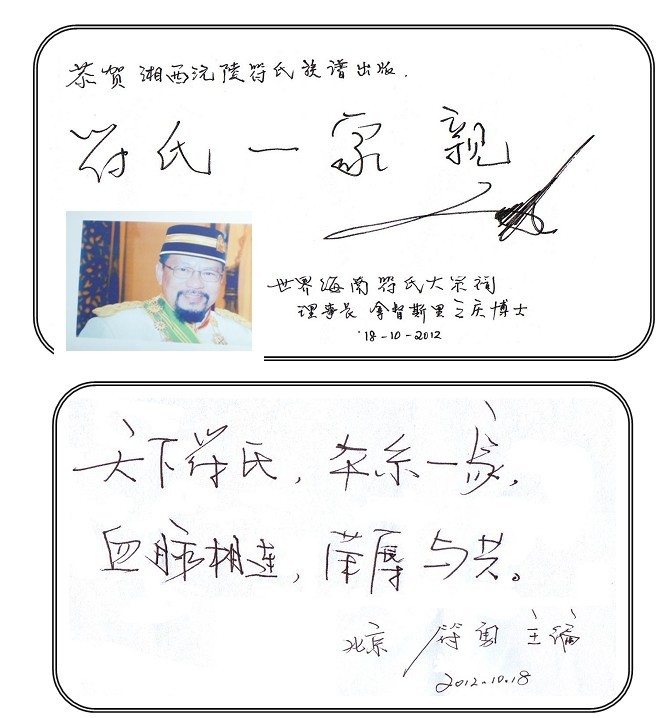 恭贺 湘西沅陵符氏族谱出版.
符氏一家亲
世界海南符氏大宗祠
理事长 拿督斯里之庆博士
18-10-2012
天下符氏，本系一家，
血脉相连，荣辱与共。
北京 符勇 主编
2012.10.18